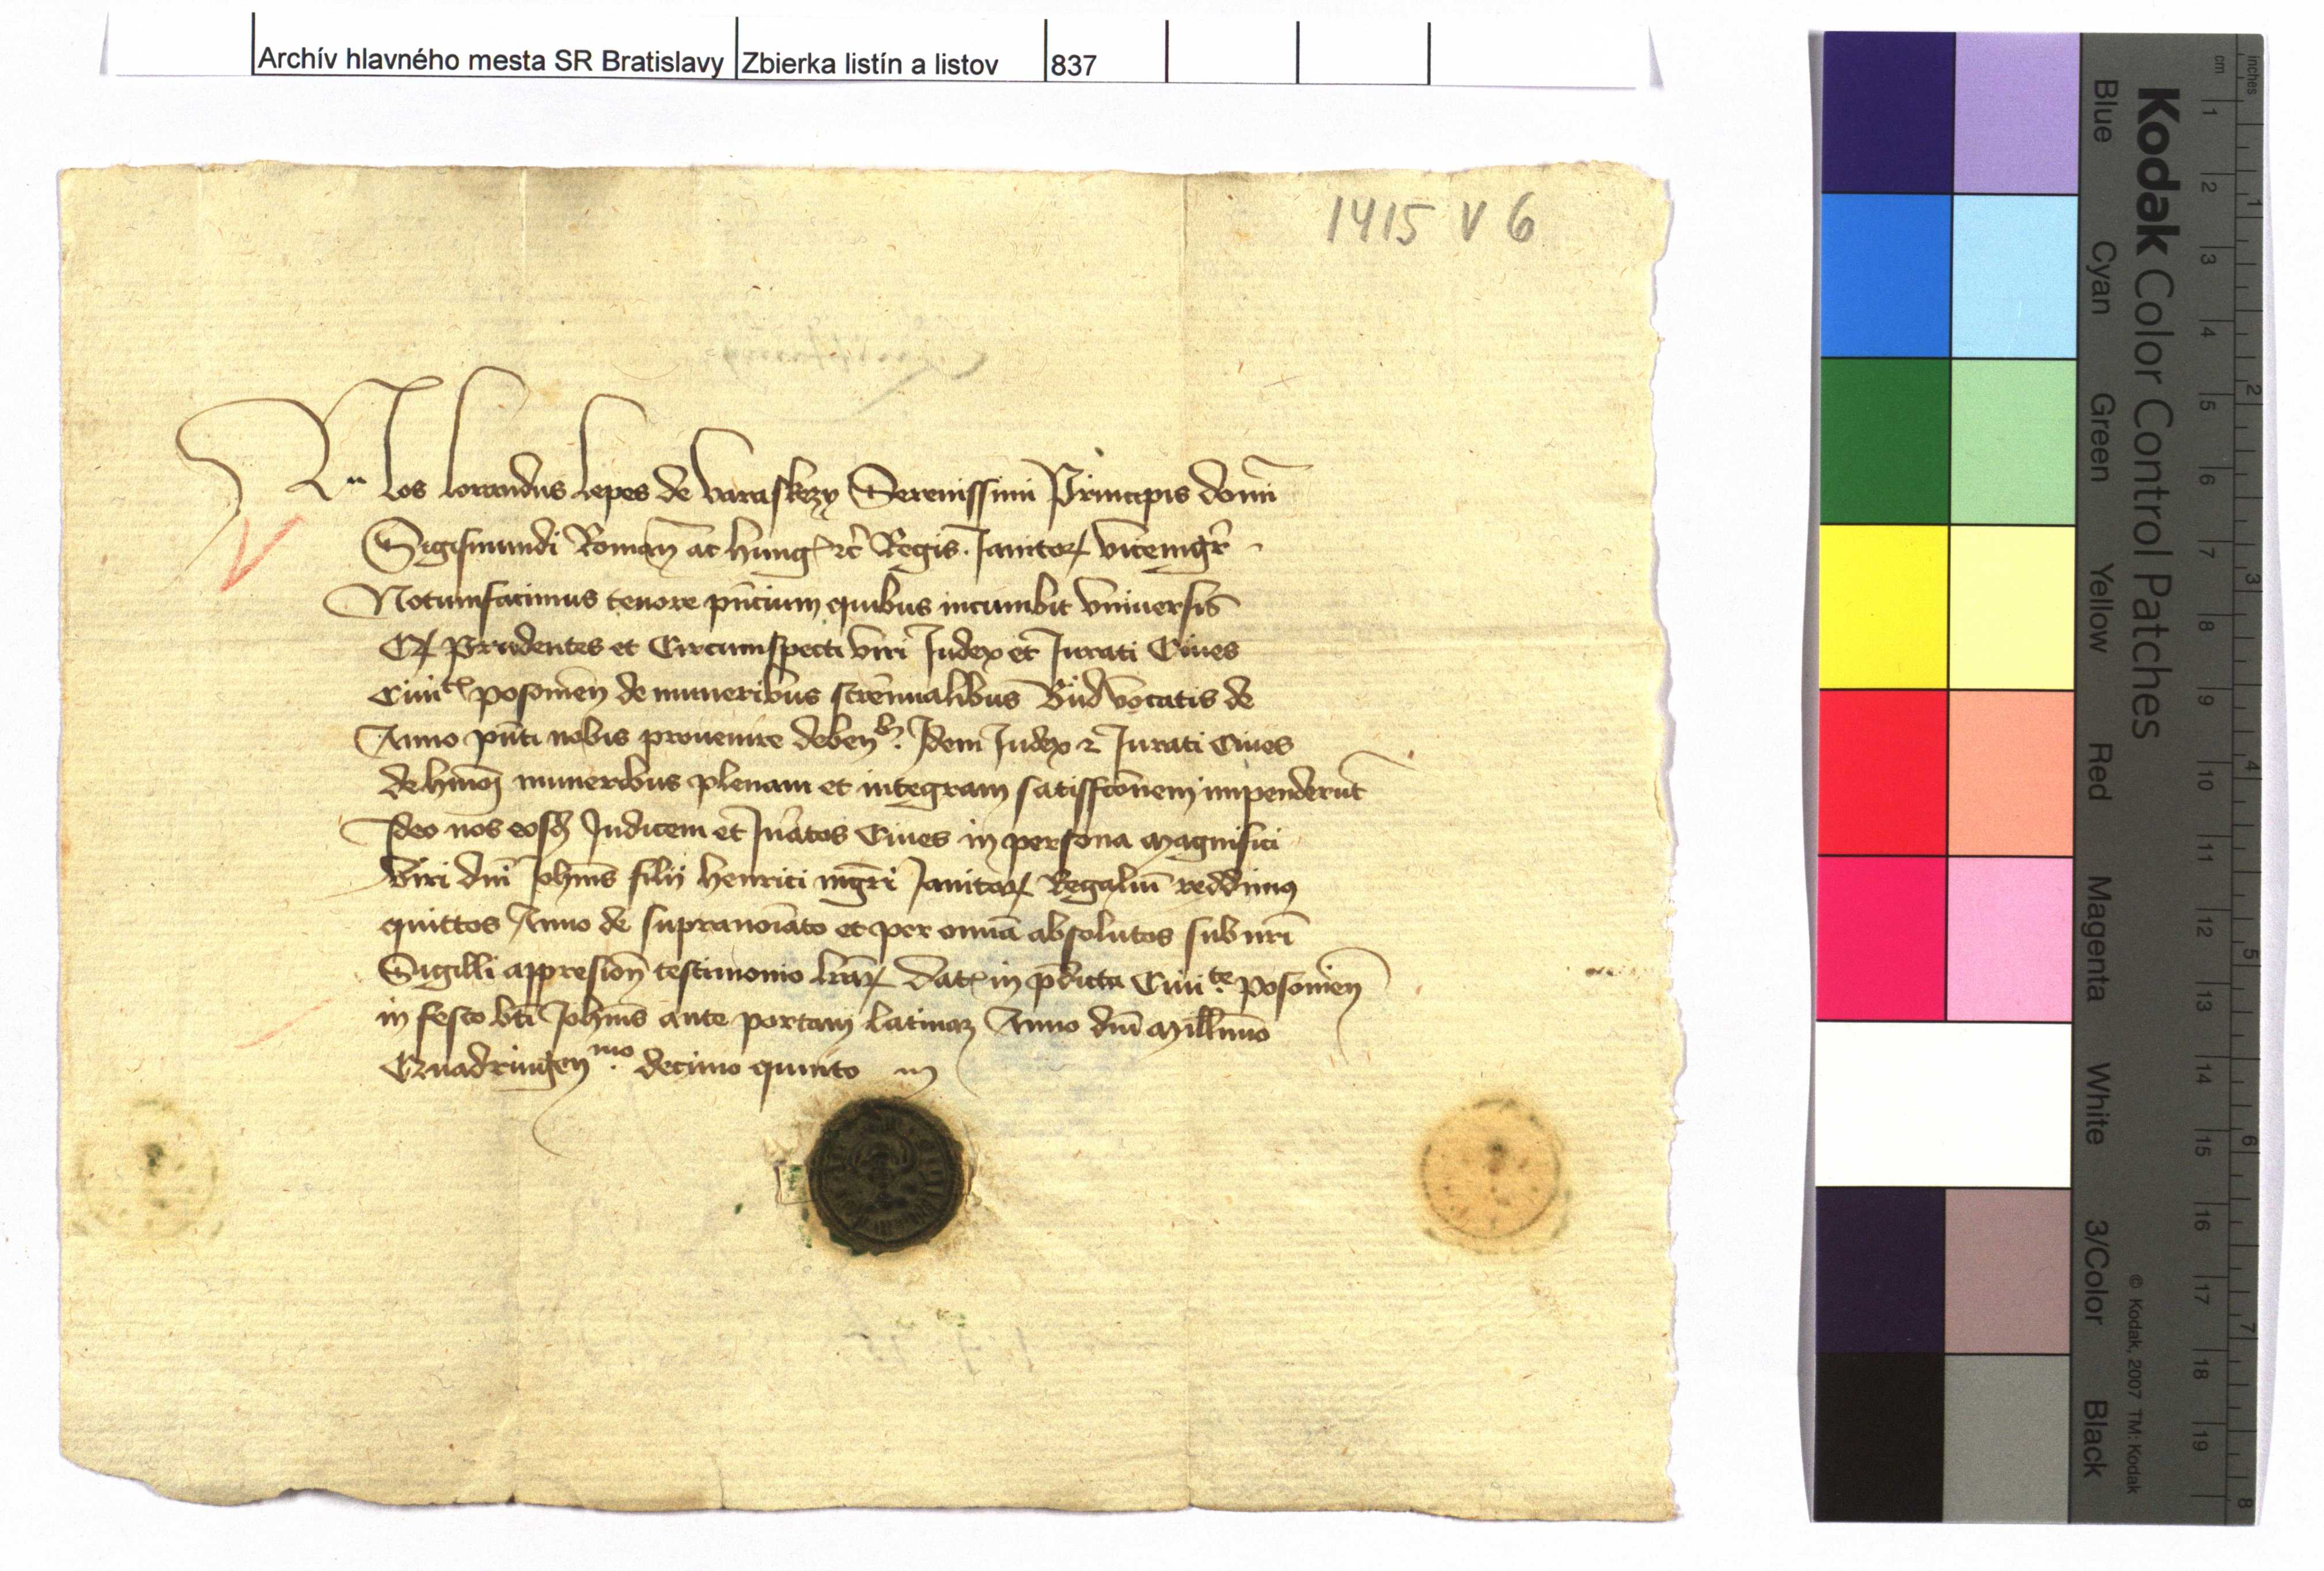 Archív hlavného mesta SR Bratislavy Zbierka listín a listov 837
1415 V 6
Nos lorandus lepes de varaskezy Serenissimi Principis domī
Sigismundi Romanoȝ ac hung̃ ꝛc̃ Regis Janitoꝝ vicemgr̄
Notumfacimus tenore pn̄cium quibus incumbit vniuersis
Qꝛ Prudentes et Circumspecti viri Judex et Jurati Ciues
Ciuit̃ posonien̄ de muneribus strennualibus vocatis de
Anno pn̄ti nobis prouenire deben̄ Idem Judex ⁊ Jurati Ciues
de hmōi muneribus plenam et integram satisfc̄onem impenderūt
Ideo nos eosd̃ Judicem et Juratos Ciues in persona magnifici
viri dn̄i Joh̄nis filij henrici mgr̄i Janitoꝝ Regaliū reddimus
quittos Anno de supranoīato et per omnīa absolutos sub nr̄i
Sigilli appresion̄ testimonio lrāꝝ Dat̃ in p̄dicta Ciuite posonien̄
in festo bt̄i Joh̄nis ante portam latinaȝ Anno dn̄i Mill̄imo
Quadringenmo decimo quinto
Kodak Color Control Patches
Blue Cyan Green Yellow Red Magenta White 3/Color Black
© Kodak, 2007 TM: Kodak
cm 1 2 3 4 5 6 7 8 9 10 11 12 13 14 15 16 17 18 19
inches 1 2 3 4 5 6 7 8